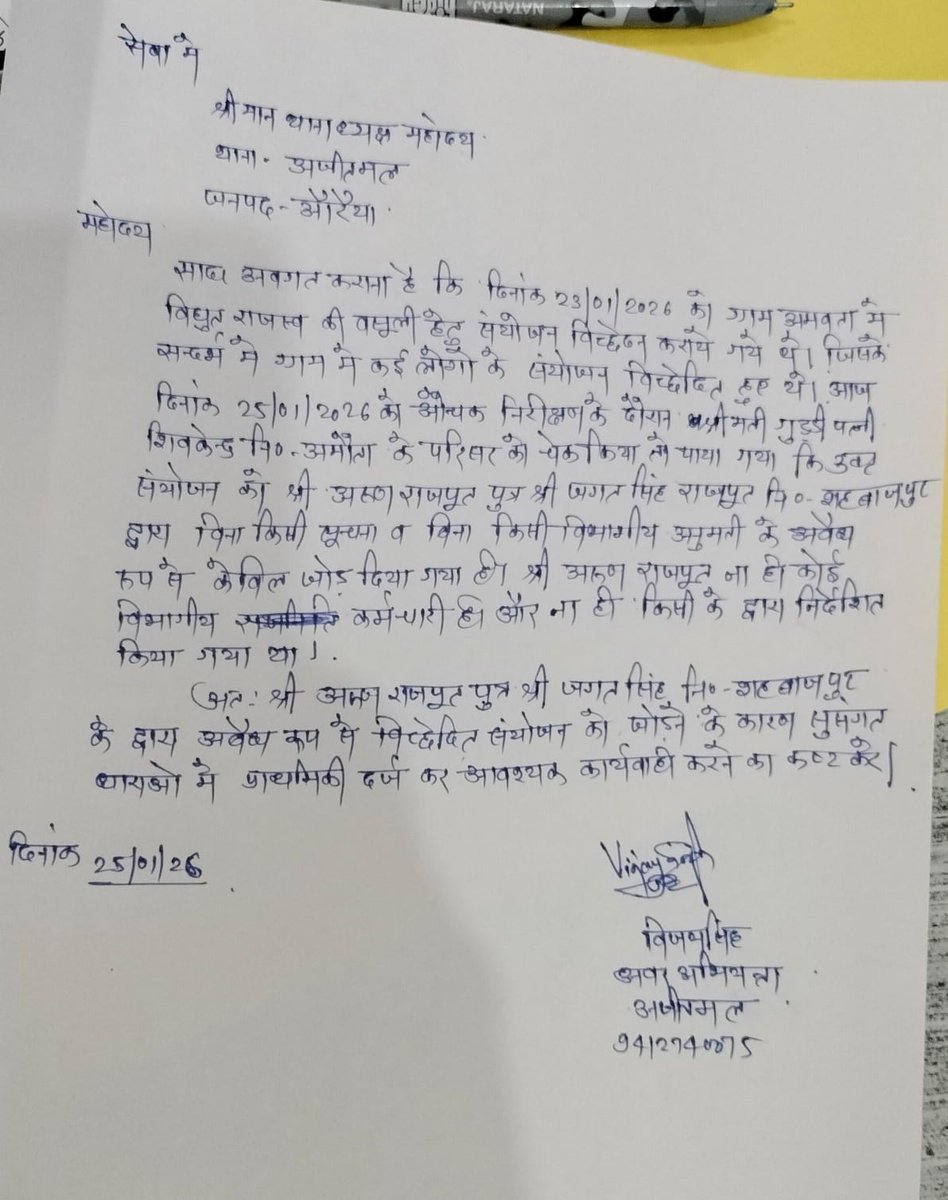 NATARAJ
सेवा में
श्रीमान थानाध्यक्ष महोदय
थाना - अजीतमल
जनपद - औरैया
महोदय
सादर अवगत कराना है कि दिनांक 23/01/2026 को ग्राम अमवता में
विधुत राजस्व की वसूली हेतु संयोजन विच्छेदन कराये गये थे। जिसके
सन्दर्भ में ग्राम में कई लोगो के संयोजन विच्छेदित हुए थे। आज
दिनांक 25/01/2026 को औचक निरीक्षण के दौरान श्रीमती गुड्डी पत्नी
शिवकेन्द्र नि०-अमौता के परिसर को चेक किया तो पाया गया कि उक्त
संयोजन को श्री अरुण राजपूत पुत्र श्री जगत सिंह राजपूत नि०-शहबाजपुर
द्वारा बिना किसी सूचना व बिना किसी विभागीय अनुमती के अवैध
रूप से केबिल जोड़ दिया गया है। श्री अरुण राजपूत ना ही कोई
विभागीय कर्मचारी है। और ना ही किसी के द्वारा निर्देशित
किया गया था।
अतः श्री अरुण राजपूत पुत्र श्री जगत सिंह नि०-शहबाजपुर
के द्वारा अवैध रूप से विच्छेदित संयोजन को जोड़ने के कारण सुसंगत
धाराओ में प्राथमिकी दर्ज कर आवश्यक कार्यवाही करने का कष्ट करे।
दिनांक 25/01/26
Vijay Singh
विजय सिंह
अवर अभियन्ता
अजीतमल